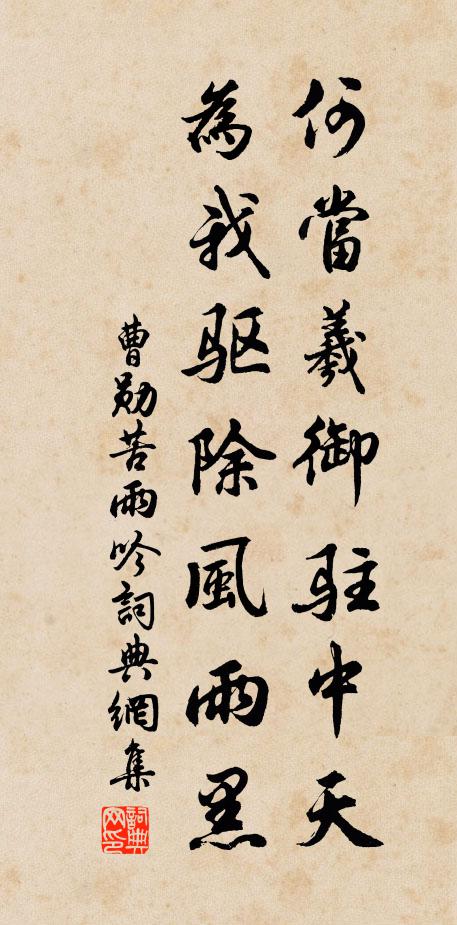 何當羲御驻中天
為我驱除風雨黑
曹勛苦雨吟詞典網集
詞典网印